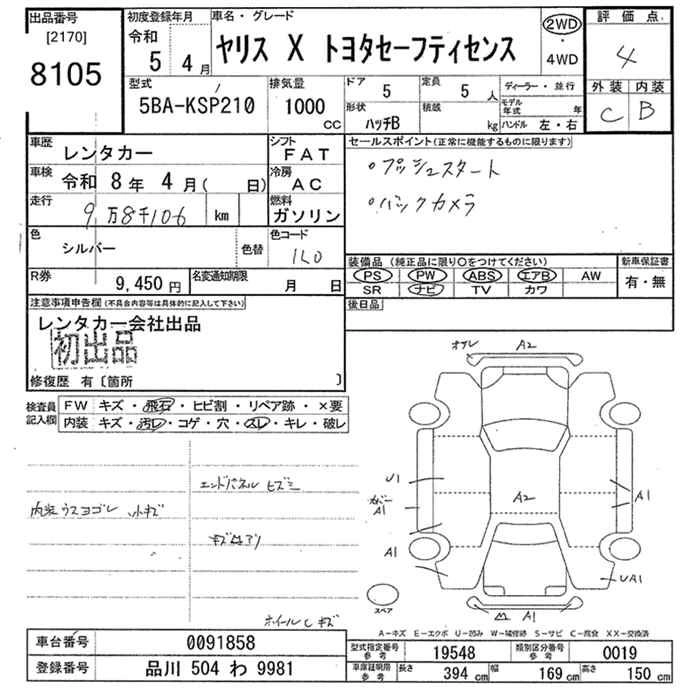 出品番号
[2170]
8105
初度登録年月
令和
5 4月
車名・グレード
ヤリス X トヨタセーフティセンス
2WD
・
4WD
評価点
4
外装 内装
C B
型式
5BA-KSP210
排気量
1000
CC
ドア
5
定員
5 人
形状
ハッチB
積載
kg
ディーラー・並行
モデル年式 年
ハンドル 左・右
車歴
レンタカー
シフト
FAT
車検
令和 8年 4月( 日)
冷房
AC
走行
9万8千106 km
燃料
ガソリン
色
シルバー
色替
色コード
1L0
R券
9,450円
名変通知期限
月 日
セールスポイント(正常に機能するものに限ります)
・プッシュスタート
・バックカメラ
装備品 (純正品に限り○をつけてください)
PS PW ABS エアB AW
SR ナビ TV カワ
新車保証書
有・無
後日品
注意事項申告欄(不具合内容等は具体的に記入して下さい)
レンタカー会社出品
初出品
修復歴 有〔箇所 〕
検査員
記入欄
FW キズ・飛石・ヒビ割・リペア跡・×要
内装 キズ・汚レ・コゲ・穴・スレ・キレ・破レ
エンドパネル ヒズミ
内装ウスヨゴレ 小キズ
ホイールキズ
A2
U1
A1
A2
A1
A1
UA1
A1
スペア
A-キズ E-エクボ U-凹み W-補修跡 S-サビ C-腐食 XX-交換済
車台番号
0091858
登録番号
品川 504 わ 9981
型式指定番号
参考
19548
類別区分番号
参考
0019
車庫証明用
参考
長さ
394 cm
幅
169 cm
高さ
150 cm